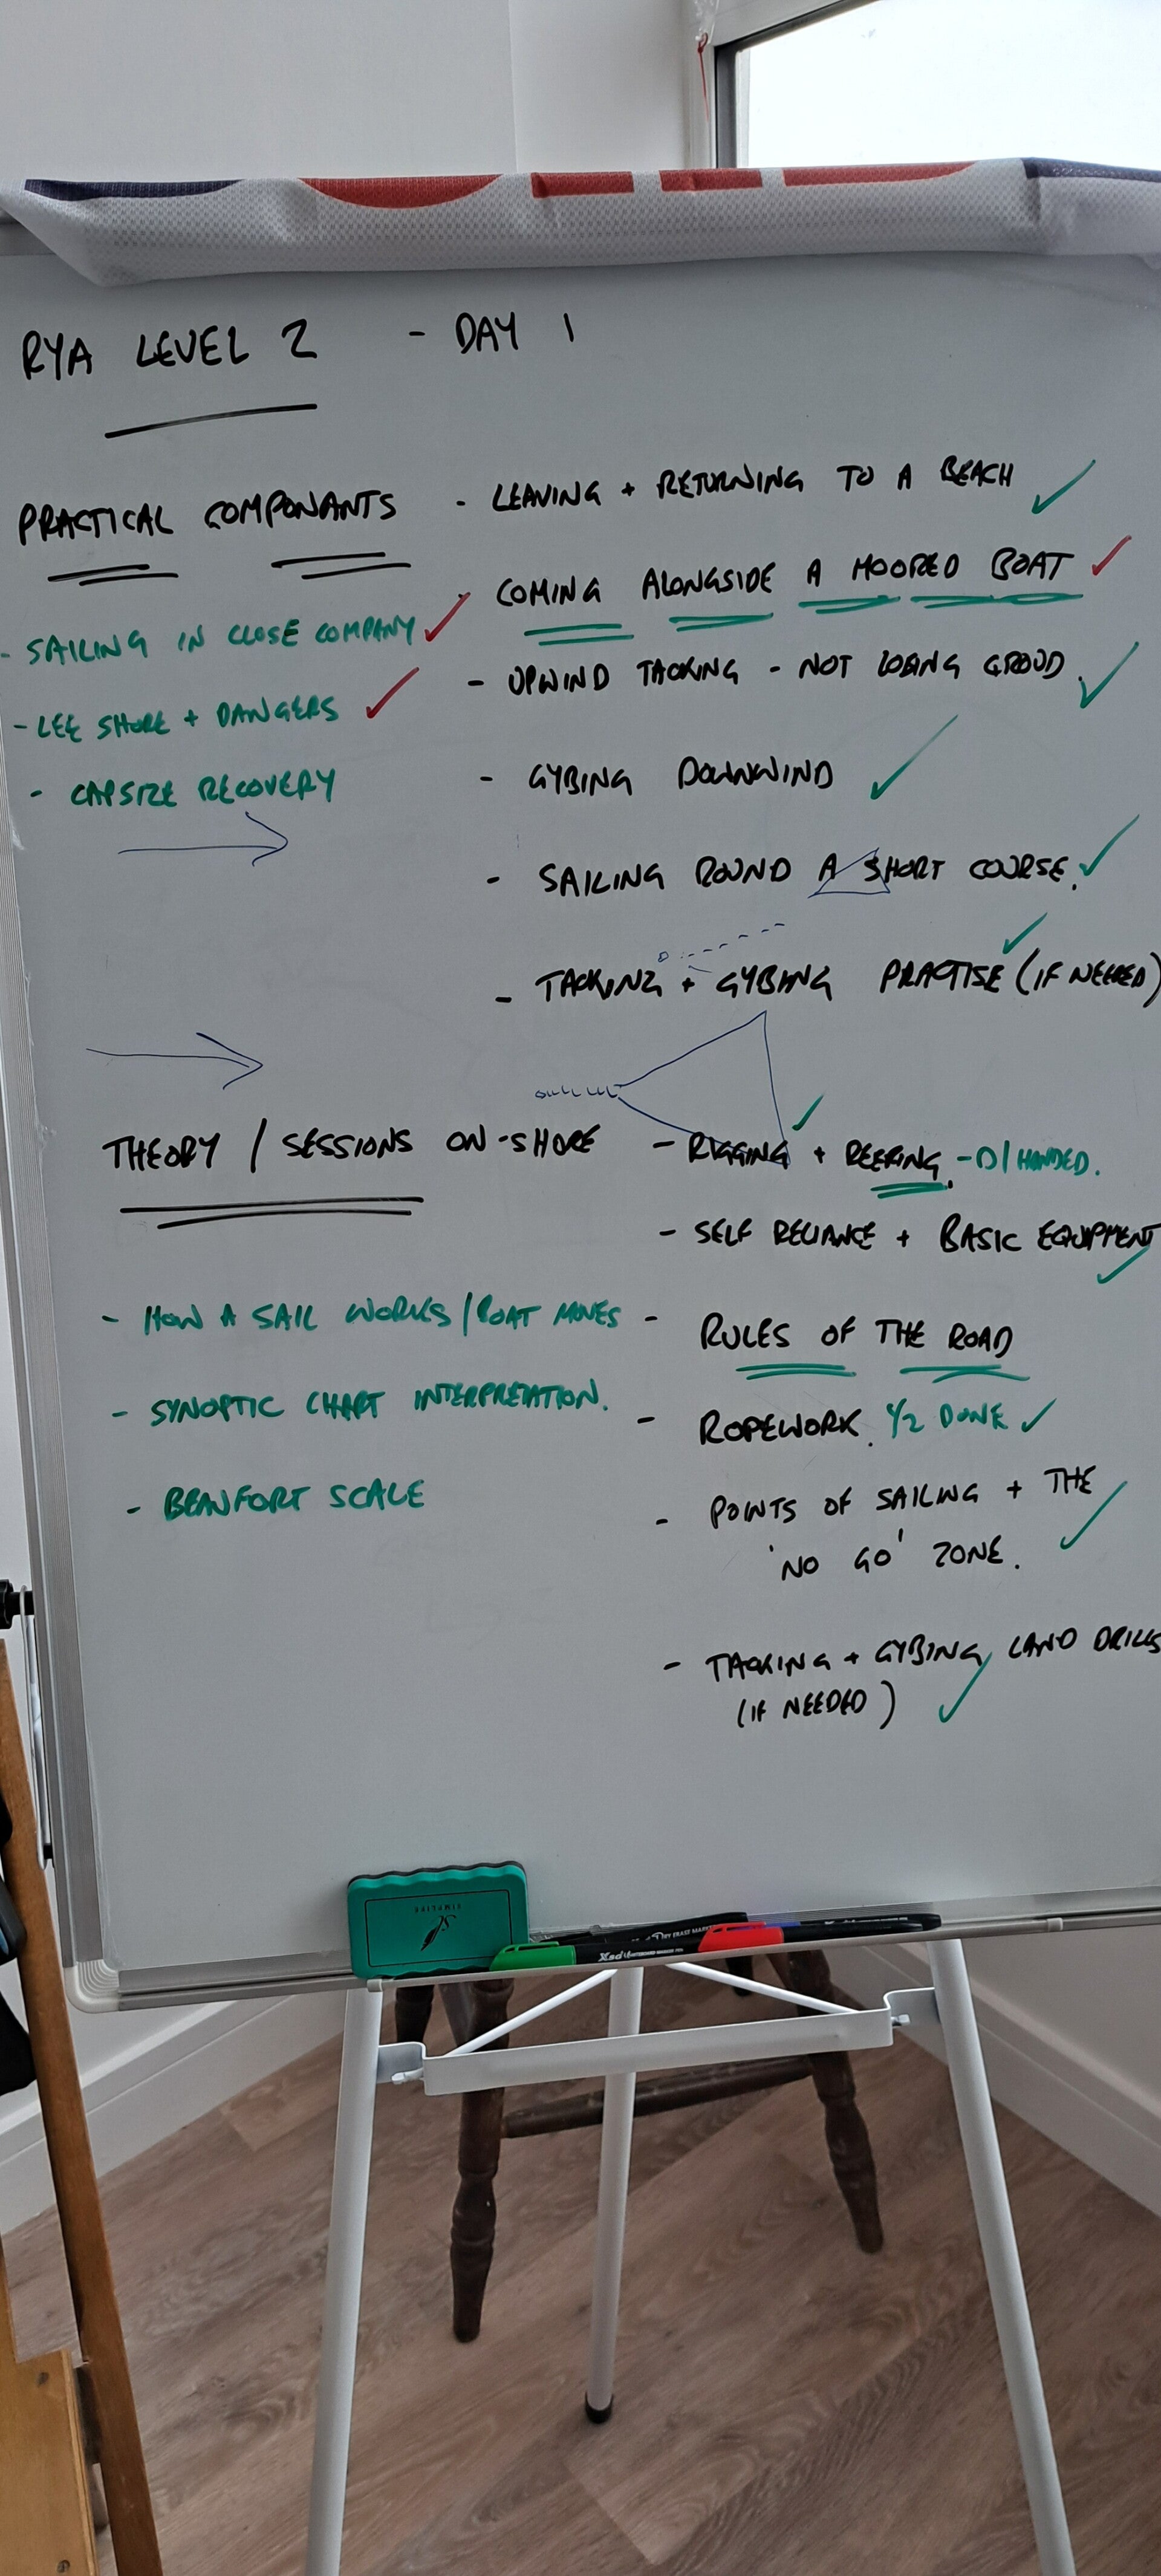 RYA LEVEL 2 - DAY 1
PRACTICAL COMPONANTS
- LEAVING + RETURNING TO A BEACH ✓
- COMING ALONGSIDE A MOORED BOAT ✓
- UPWIND TACKING - NOT LOSING GROUD. ✓
- GYBING DOWNWIND ✓
- SAILING ROUND A SHORT COURSE. ✓
- TACKING + GYBING PRACTISE (IF NEEDED) ✓
- SAILING IN CLOSE COMPANY ✓
- LEE SHORE + DANGERS ✓
- CAPSIZE RECOVERY
THEORY / SESSIONS ON-SHORE
- RIGGING ✓ + REEFING. - D/HANDED.
- SELF RELIANCE + BASIC EQUIPMENT ✓
- RULES OF THE ROAD
- ROPEWORK. 1/2 DONE ✓
- POINTS OF SAILING + THE
'NO GO' ZONE. ✓
- TACKING + GYBING LAND DRILLS
(IF NEEDED) ✓
- HOW A SAIL WORKS / BOAT MOVES
- SYNOPTIC CHART INTERPRETATION.
- BEAUFORT SCALE
Xsd WHITEBOARD MARKER PEN